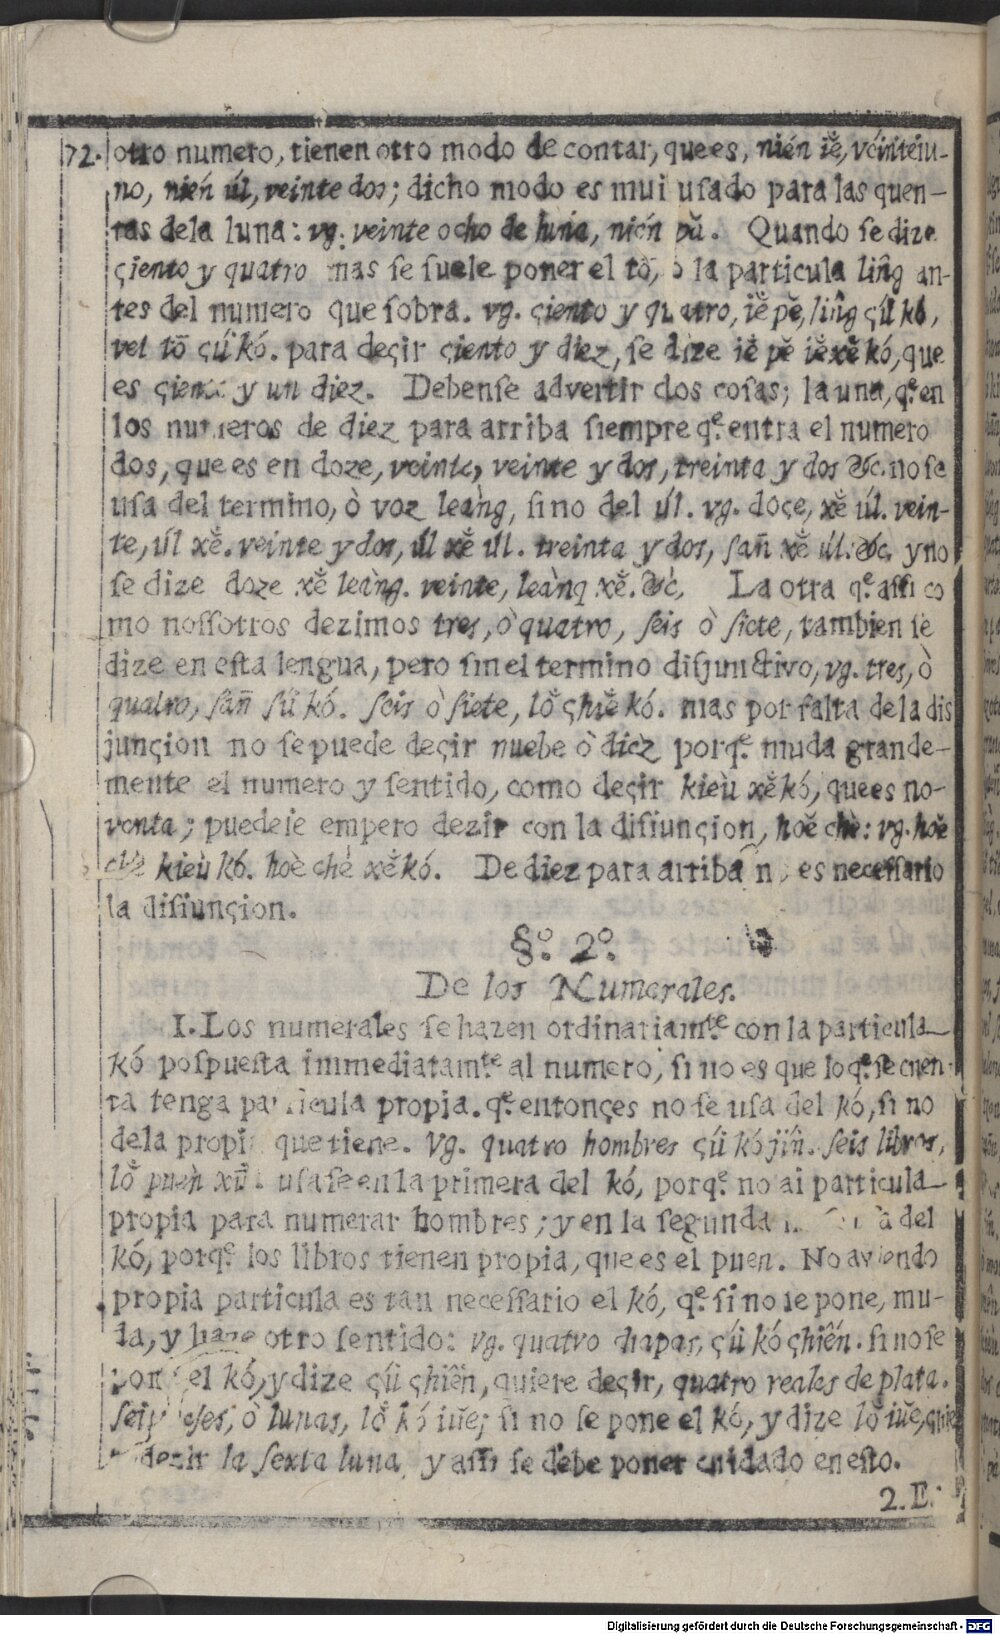 72. otro numero, tienen otro modo de contar, que es, nién iĕ, véinteiu-
no, nień úl, veinte dos; dicho modo es mui uſado para las quen-
tas dela luna: vg. veinte ocho de luna, nién pă. Quando ſe dize
çiento y quatro mas ſe ſuele poner el tō, ò la particula lin̂g an-
tes del numero que ſobra. vg. çiento y quatro, iĕ pĕ, lin̂g çú kó,
vel tō çú kó. para deçir çiento y diez, ſe dize iĕ pĕ iĕ xĕ kó, que
es çiento y un diez. Debenſe advertir dos coſas; la una, q.e en
los numeros de diez para arriba ſiempre q.e entra el numero
dos, que es en doze, veinte, veinte y dos, treinta y dos &c. no ſe
uſa del termino, ò voz leàng, ſino del úl. vg. doçe, xĕ úl. vein-
te, úl xĕ. veinte y dos, úl xĕ úl. treinta y dos, ſañ xĕ úl. &c. y no
ſe dize doze xĕ leàng. veinte, leàng xĕ. &c. La otra q.e aſſi co
mo noſſotros dezimos tres, ò quatro, ſeis ò ſiete, tambien ſe
dize en eſta lengua, pero ſin el termino diſjunctivo, vg. tres, ò
quatro, ſañ ſú kó. ſeis ò ſiete, lŏ çhiĕ kó. mas por falta de la diſ
junçion no ſe puede deçir nuebe ò diez porq.e muda grande-
mente el numero y ſentido, como deçir kieù xĕ kó, que es no-
venta; puedeſe empero dezir con la diſiunçion, hoĕ chè: vg. hoĕ
chè kieù kó. hoè chè xĕ kó. De diez para arriba no es neceſſario
la diſiunçion.
§.o 2.o
De los Numerales.
1. Los numerales ſe hazen ordinariam.te con la particula
kó poſpueſta immediatam.te al numero, ſi no es que lo q.e ſe cuen-
ta tenga particula propia. q.e entonçes no ſe uſa del kó, ſi no
dela propia que tiene. Vg. quatro hombres çú kó jin̂. ſeis libros,
lŏ puèn xū. uſaſe en la primera del kó, porq.e no ai particula
propia para numerar hombres; y en la ſegunda no ſe uſa del
kó, porq.e los libros tienen propia, que es el puen. No aviendo
propia particula es tan neceſſario el kó, q.e ſi no ſe pone, mu-
da, y haze otro ſentido: vg. quatro chapas, çú kó çhiên. ſi no ſe
pone el kó, y dize çú çhiên, quiere deçir, quatro reales de plata.
ſeis meſes, ò lunas, lŏ kó iuĕ; ſi no ſe pone el kó, y dize lŏ iuĕ, quie
re dezir la ſexta luna, y aſſi ſe debe poner cuidado en eſto.
2. E.
Digitalisierung gefördert durch die Deutsche Forschungsgemeinschaft - DFG